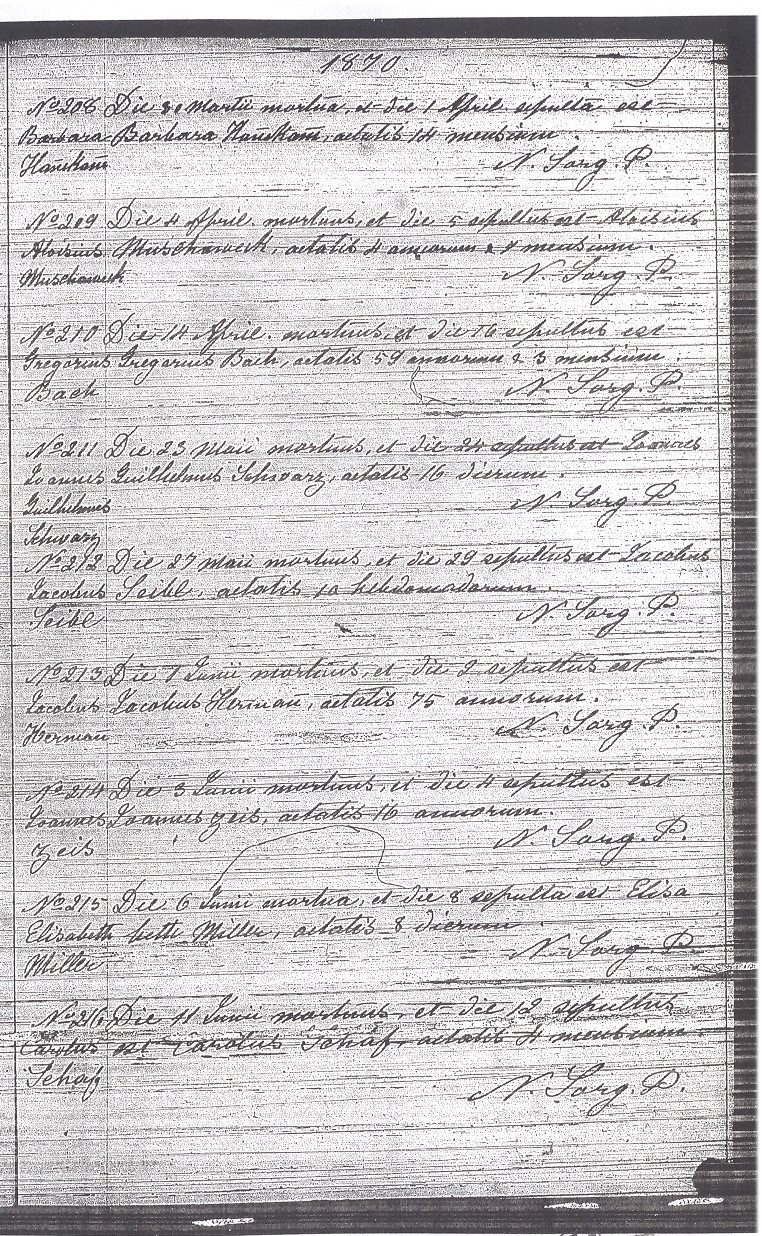 1870.
No 208 Die 30 Martii mortua, et die 1 April. sepulta est
Barbara Barbara Hauckam, aetatis 14 mensium.
Hauckam N. Sorg. P.
No 209 Die 4 April. mortuus, et die 5 sepultus est Aloisius
Aloisius Muschaweck, aetatis 4 annorum & 4 mensium.
Muschaweck N. Sorg. P.
No 210 Die 14 April. mortuus, et die 16 sepultus est
Gregorius Gregorius Bach, aetatis 59 annorum & 3 mensium.
Bach N. Sorg. P.
No 211 Die 23 Maii mortuus, et die 24 sepultus est Joannes
Joannes Guilhelmus Schwarz, aetatis 16 dierum.
Guilhelmus N. Sorg. P.
Schwarz
No 212 Die 27 Maii mortuus, et die 29 sepultus est Jacobus
Jacobus Seibl, aetatis 10 hebdomadarum.
Seibl N. Sorg. P.
No 213 Die 1 Junii mortuus, et die 2 sepultus est
Jacobus Jacobus Herman, aetatis 75 annorum.
Herman N. Sorg. P.
No 214 Die 3 Junii mortuus, et die 4 sepultus est
Joannes Joannes Zeis, aetatis 16 annorum.
Zeis N. Sorg. P.
No 215 Die 6 Junii mortua, et die 8 sepulta est Elisa
Elisabeth beth Miller, aetatis 8 dierum
Miller N. Sorg. P.
No 216 Die 11 Junii mortuus, et die 12 sepultus
Carolus est Carolus Schaf, aetatis 4 mensium
Schaf N. Sorg. P.